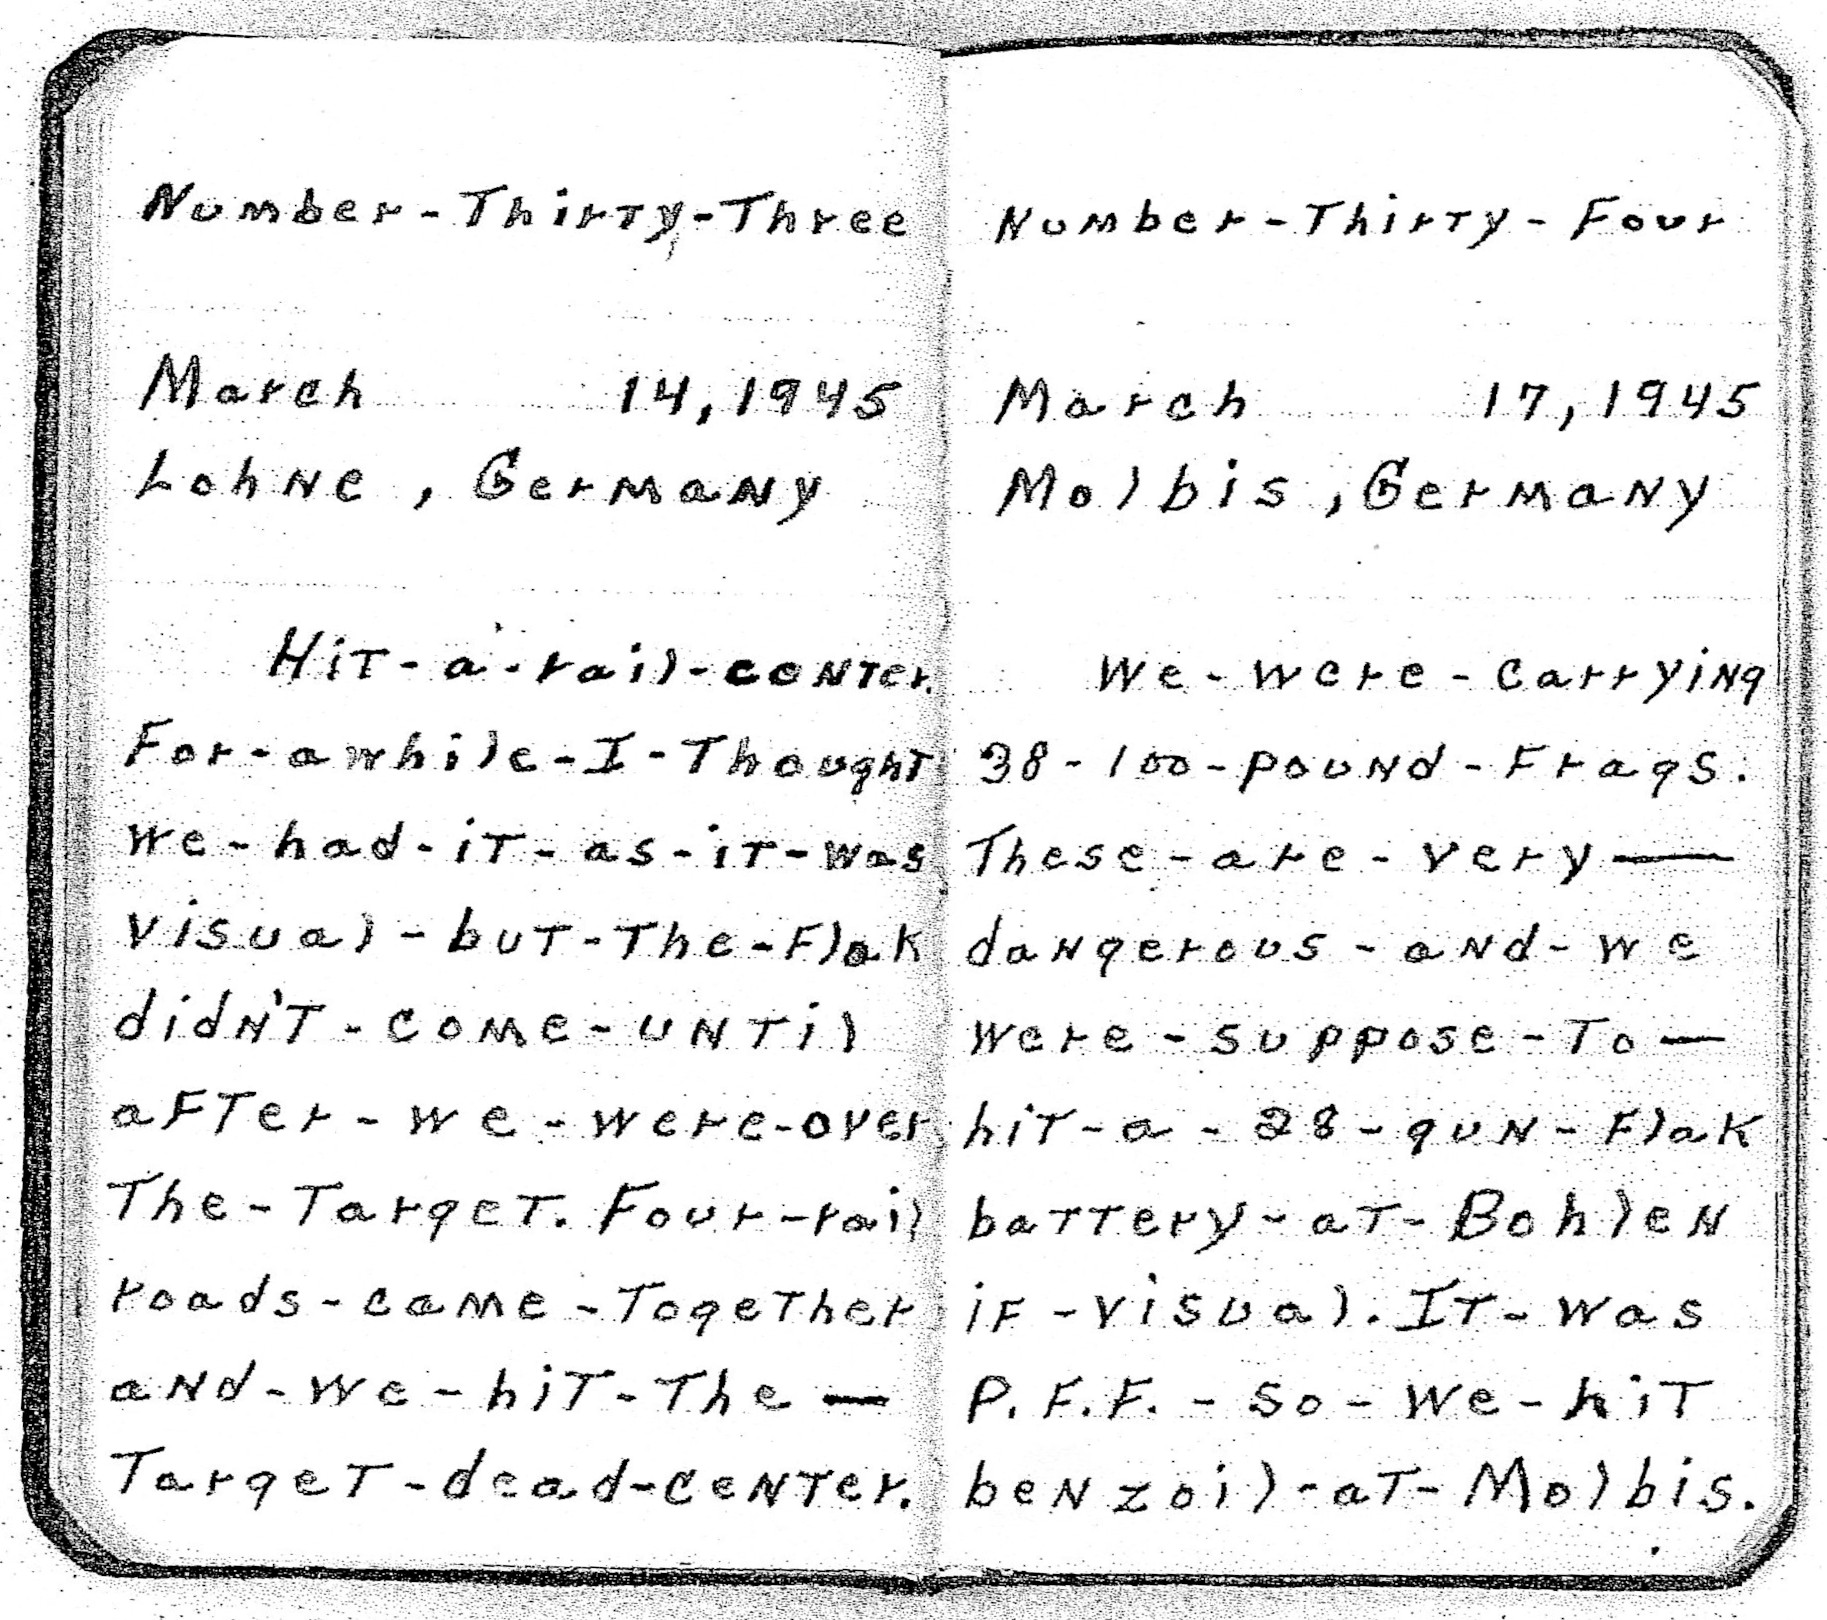 Number-Thirty-Three
March 14,1945
Lohne, Germany
Hit-a-rail-center.
For-awhile-I-Thought
we-had-it-as-it-was
visual-but-The-Flak
didn't-come-until
after-we-were-over
The-Target. Four-rail
roads-came-Together
and-we-hit-The—
Target-dead-center.
Number-Thirty-Four
March 17,1945
Molbis,Germany
We-were-carrying
38-100-pound-Frags.
These-are-very—
dangerous-and-we
were-suppose-To—
hit-a-28-gun-Flak
battery-at-Bohlen
if-visual. It-was
P.F.F.-so-we-hit
benzoil-at-Molbis.